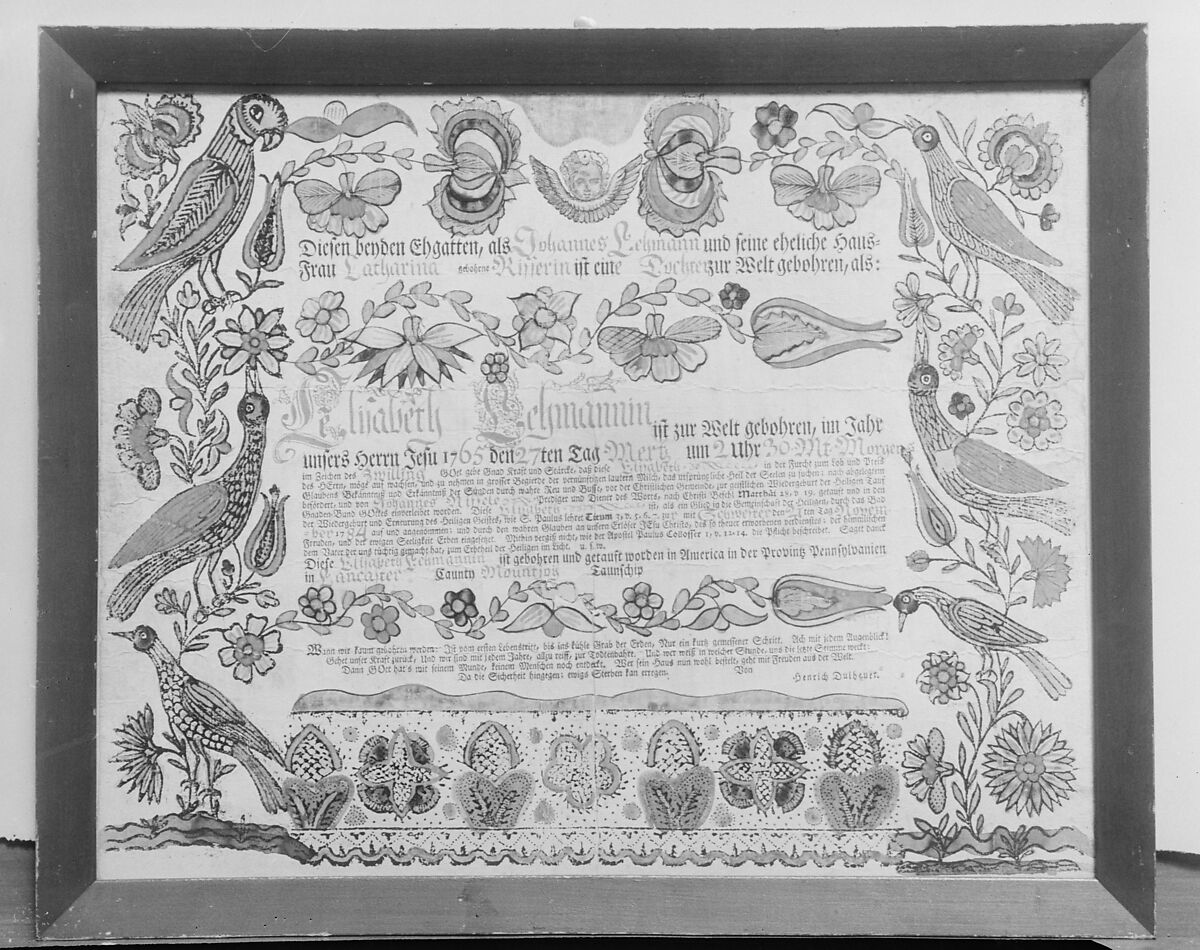 Diesen beyden Ehgatten, als Johannes Lehmann und seine eheliche Haus-
Frau Catharina gebohrne Risserin ist eine Tochter zur Welt gebohren, als:
Elisabeth Lehmannin ist zur Welt gebohren, im Jahr
unsers Herrn Jesu 1765 den 27ten Tag Mertz um 2 Uhr 30 Mt. Morgens
im Zeichen des Zwilling GOtt gebe Gnad Krafft und Stärcke, daß diese Elisabeth in der Furcht zum Lob und Preiß
des HErrn, mög auf wachsen, und zu nehmen in grosser Begierde der vernünfftigen lautern Milch, das ursprüngliche Heil der Seelen zu suchen: nach abgelegtem
Glaubens Bekänntnuß und Erkänntnuß der Sünden durch wahre Reu und Busse, vor der Christlichen Gemeinde, zur geistlichen Wiedergeburt der Heiligen Tauf
befördert, und von Johannes Prediger und Diener des Worts, nach Christi Befehl Matthäi 28. v. 19. getauft und in den
Gnaden-Bund GOttes einverleibt worden. Diese Elisabeth ist, als ein Glied in die Gemeinschaft der Heiligen, durch das Bad
der Wiedergeburt und Erneurung des Heiligen Geistes, wie S. Paulus lehret Titum 3, v. 5. 6. 7. den Tag Novem-
ber 1784 auf und angenommen: und durch den wahren Glauben an unsern Erlöser JEsu Christo, des so theuer erworbenen verdienstes: der himmlischen
Freuden, und der ewigen Seeligkeit Erben eingesetzet. Mithin vergiß nicht, wie der Apostel Paulus Collosser 1, v. 12. 14. die Pflicht beschreibet. Saget danck
dem Vater der uns tüchtig gemacht hat, zum Erbtheil der Heiligen im Licht. u. s. w.
Diese Elisabeth Lehmannin ist gebohren und getauft worden in America in der Provintz Pennsylvanien
in Lancaster Caunty Mountjoy Taunschip
Wann wir kaum gebohren werden: Ist vom ersten Lebenstritt, bis ins kühle Grab der Erden, Nur ein kurtz gemessener Schritt. Ach mit jedem Augenblick!
Gehet unser Kraft zurück, Und wir sind mit jedem Jahre, allzu reiff, zur Todtenbahre. Und wer weiß in welcher Stunde, uns die letzte Stimme weckt:
Dann GOtt hat's mit seinem Munde, keinem Menschen noch entdeckt. Wer sein Haus nun wohl bestelt, geht mit Freuden aus der Welt.
Da die Sicherheit hingegen: ewigs Sterben kan erregen. Von
Henrich Dulheuer.